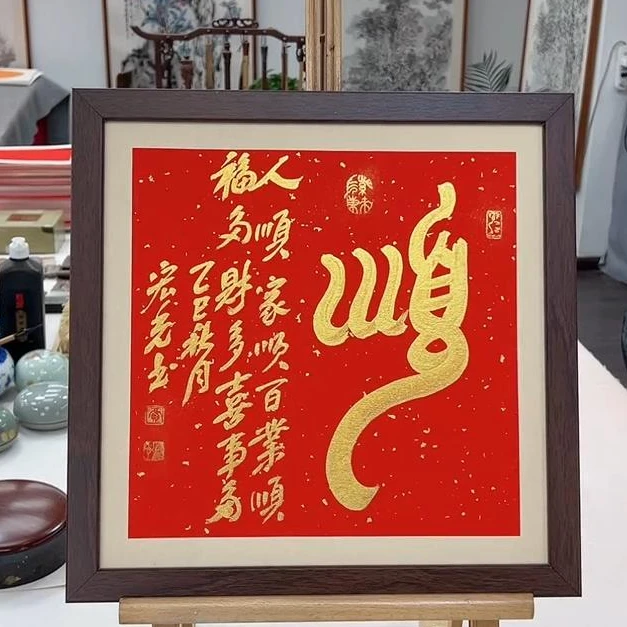 順
人順家順百業順
福多財多喜事多
乙巳秋月
宏光书